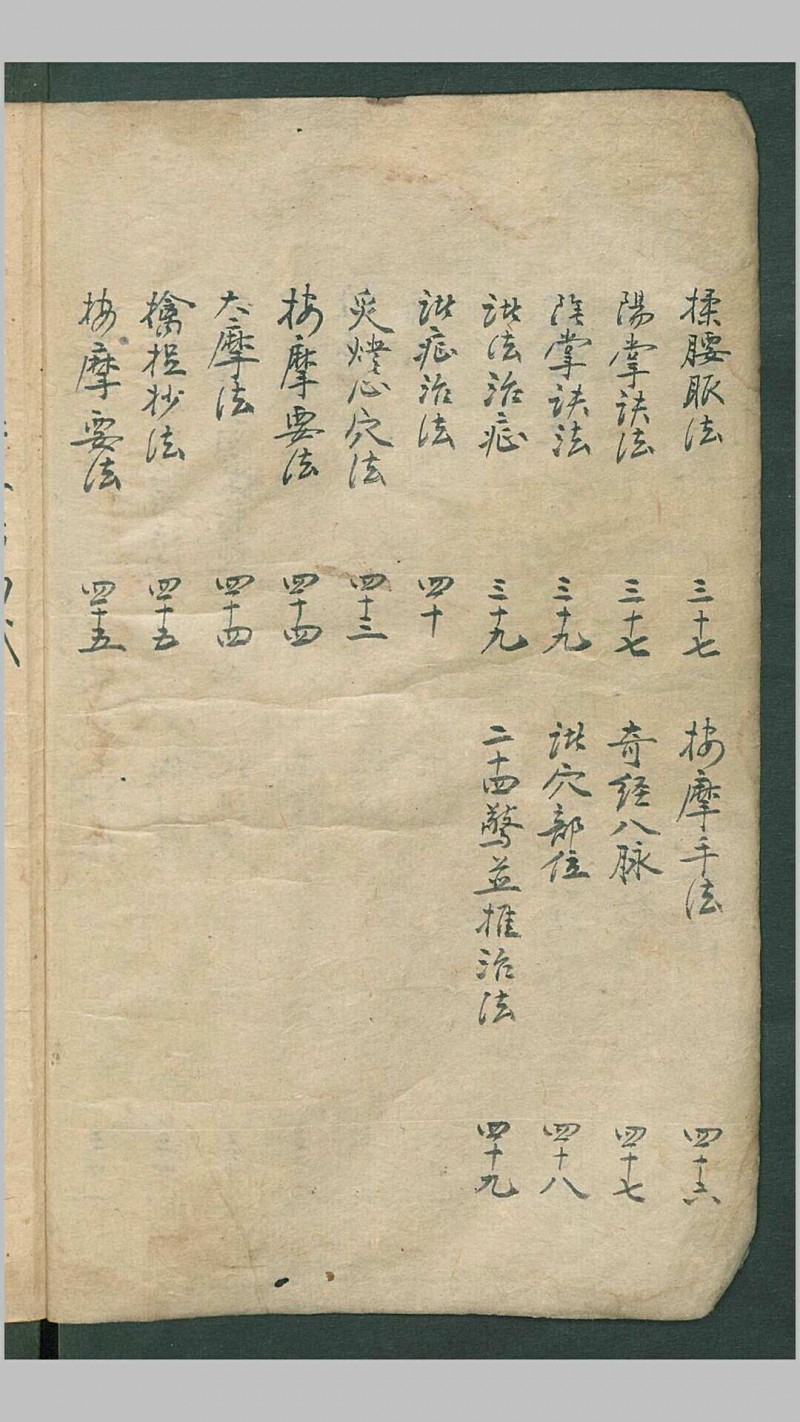 揉腰眼法 三十七
陽掌訣法 三十七
陰掌訣法 三十九
諸法治症 三十九
諸症治法 四十
炙燈心穴法 四十三
按摩要法 四十四
大摩法 四十四
擒捏抄法 四十五
按摩要法 四十五
按摩手法 四十六
奇经八脉 四十七
諸穴部位 四十八
二十四驚並推治法 四十九